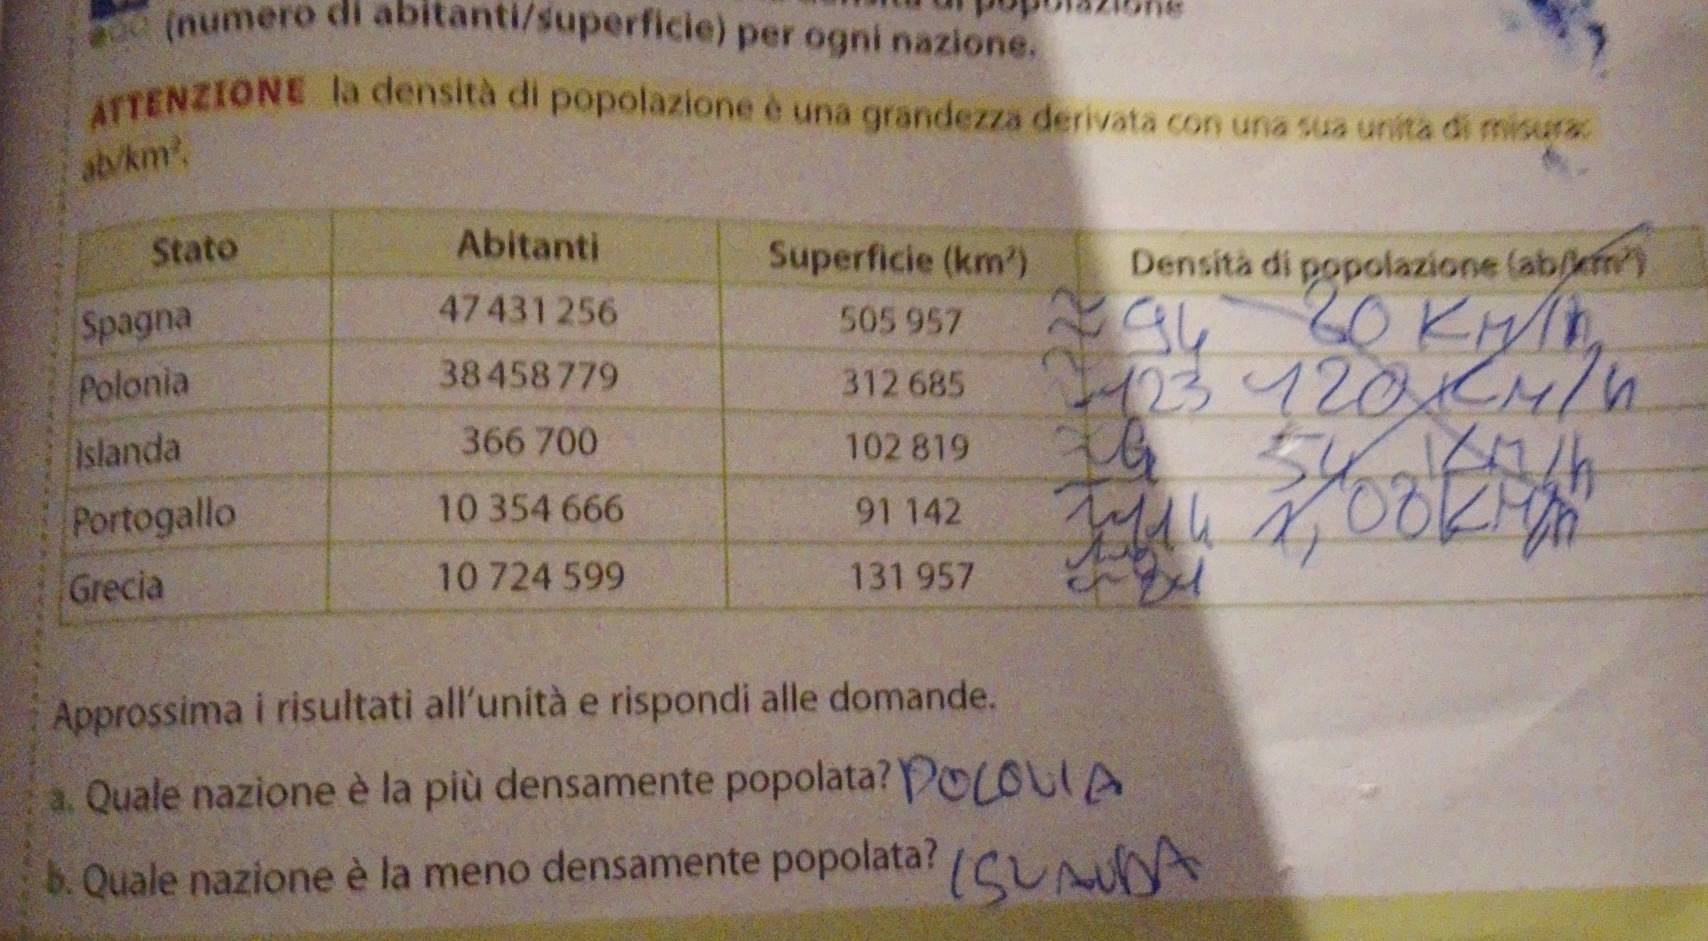 popolazione
(numero di abitanti/superficie) per ogni nazione.
ATTENZIONE la densità di popolazione è una grandezza derivata con una sua unità di misura:
ab/km².
Stato Abitanti Superficie (km²) Densità di popolazione (ab/km²)
Spagna 47 431 256 505 957 94 80 KM/h
Polonia 38 458 779 312 685 123 120 KM/h
Islanda 366 700 102 819 54 KM/h
Portogallo 10 354 666 91 142 114 1,08 KM/h
Grecia 10 724 599 131 957 81
Approssima i risultati all'unità e rispondi alle domande.
a. Quale nazione è la più densamente popolata? POLONIA
b. Quale nazione è la meno densamente popolata? ISLANDA